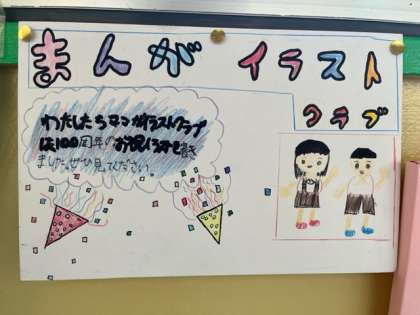 まんが イラスト
クラブ
わたしたちマンガイラストクラブ
は100周年のお祝いをかき
ました。ぜひ見てください。